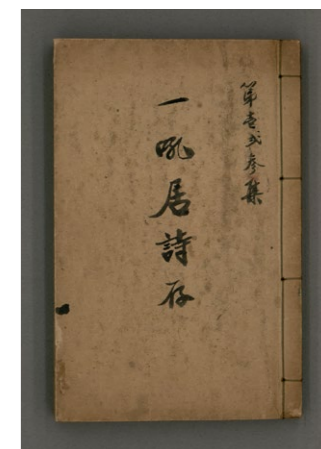 第壹弍參集
一吼居詩存